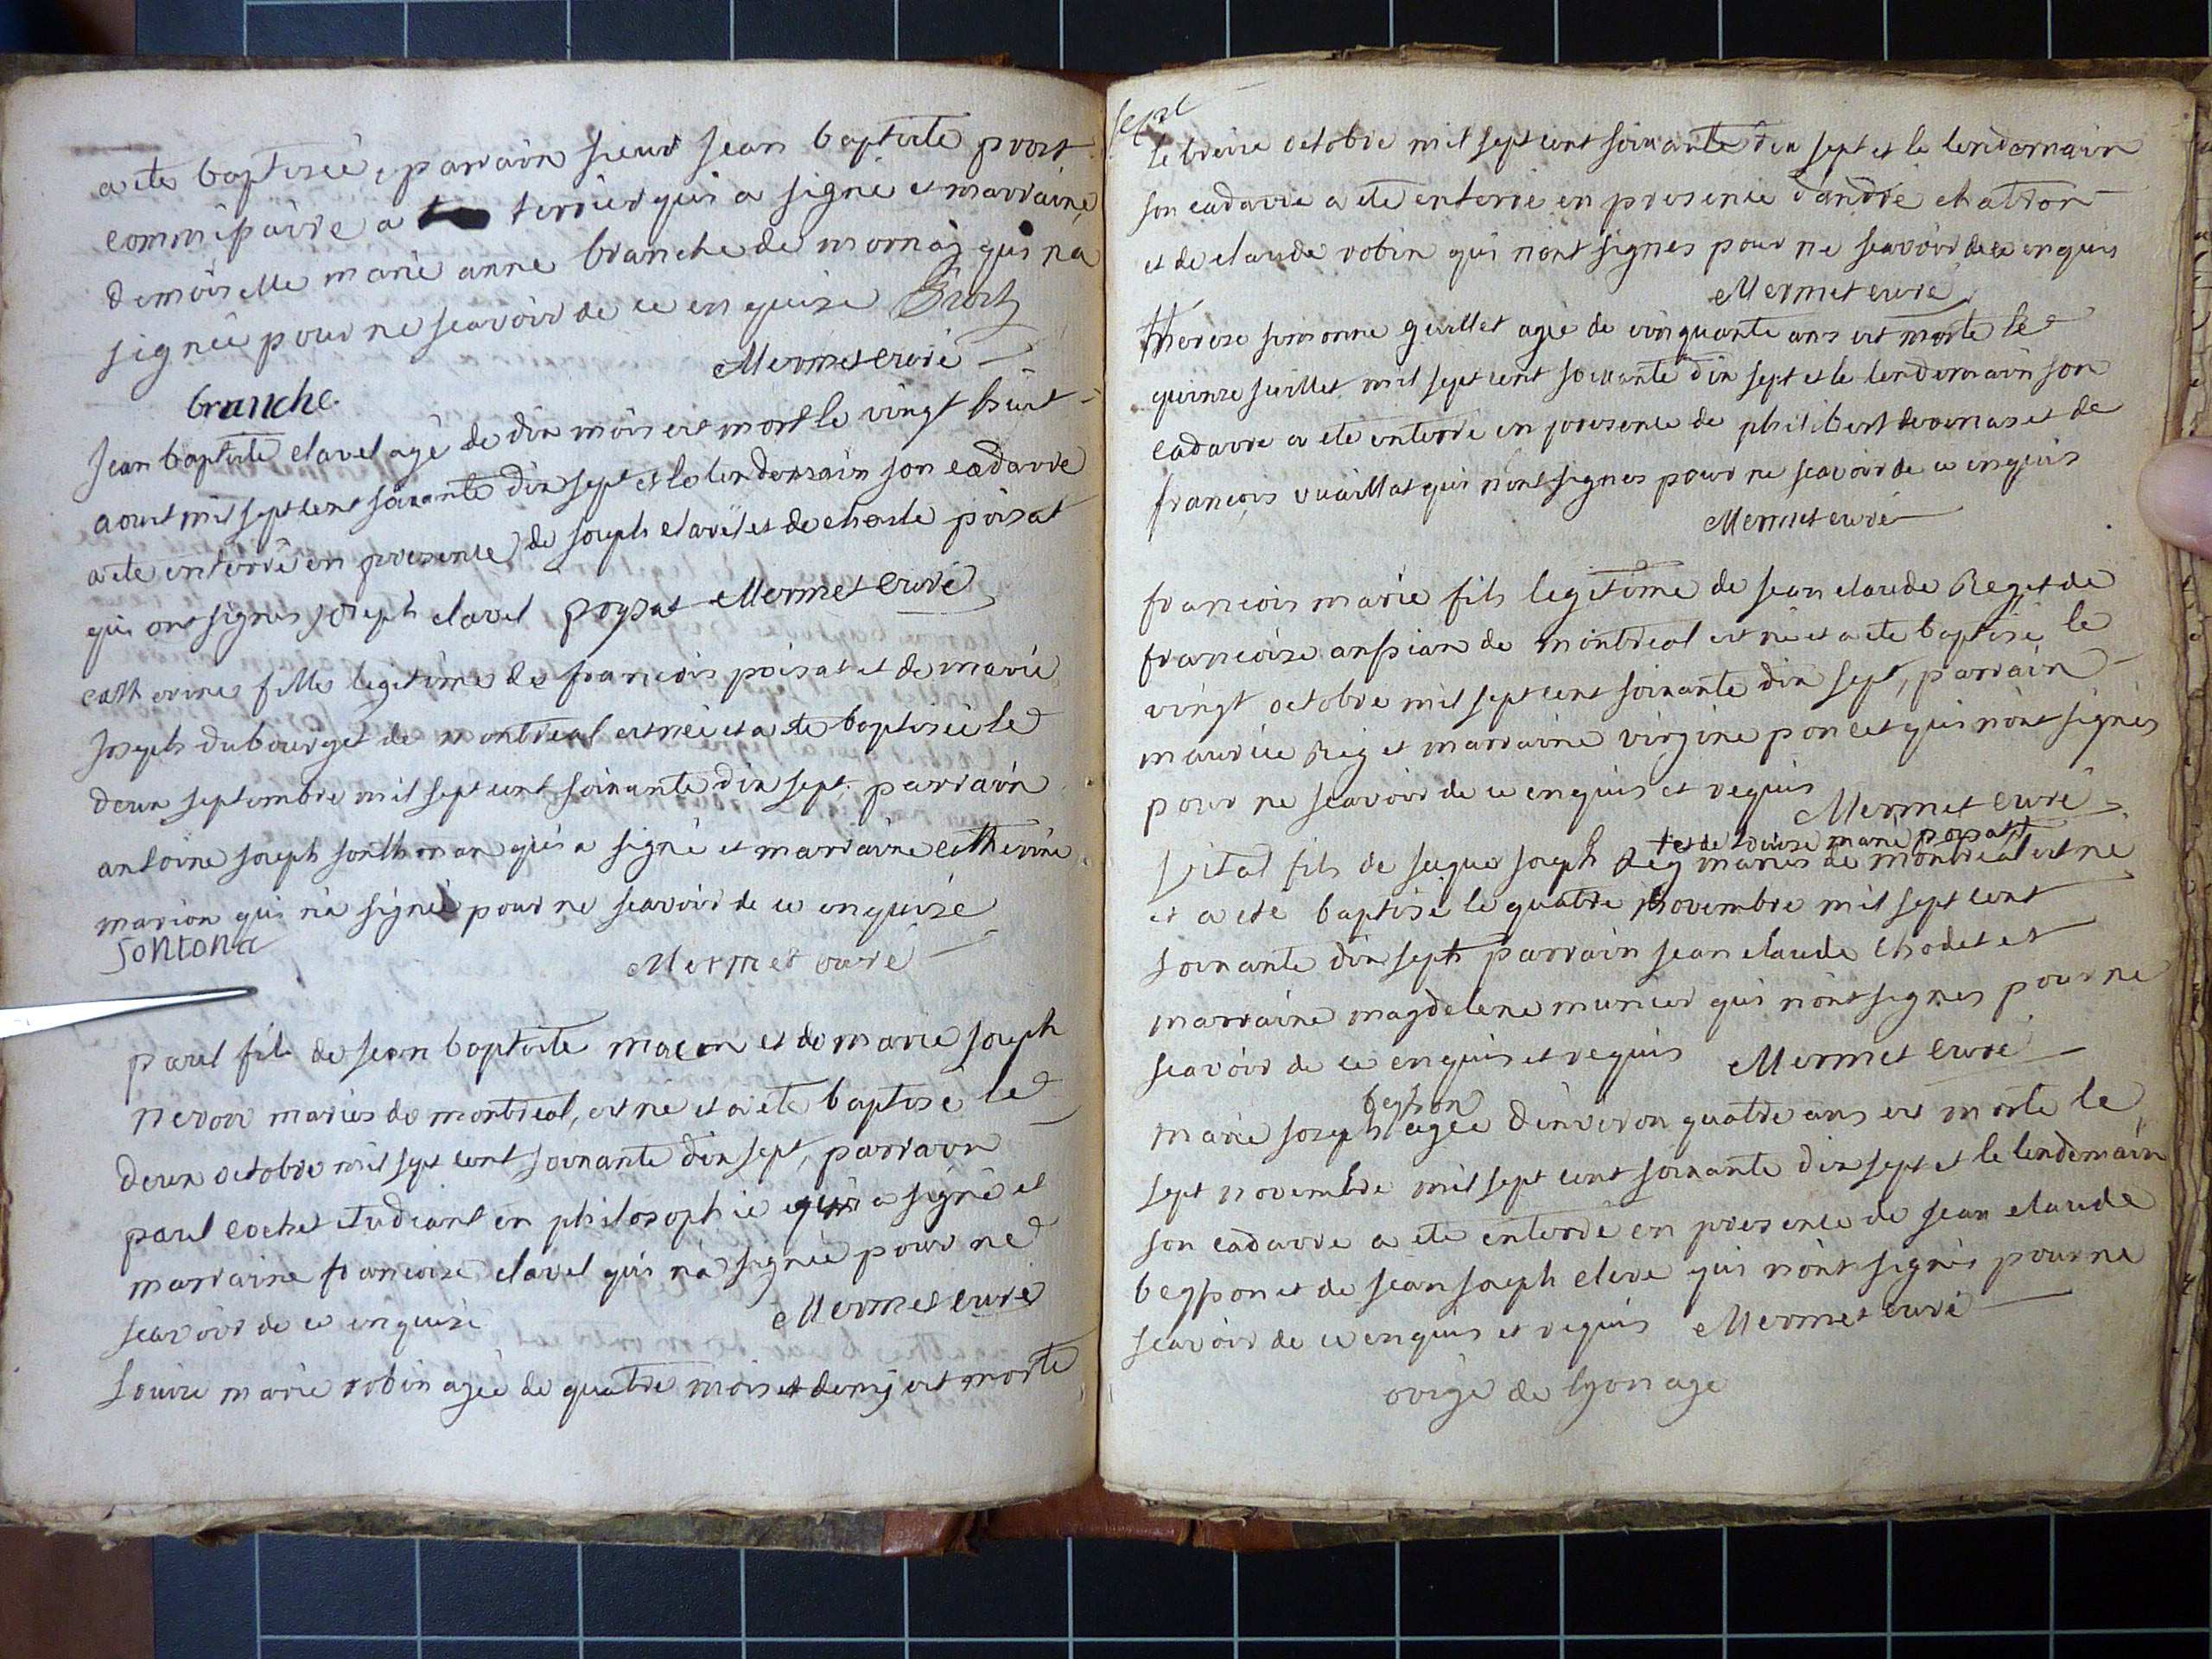 a ete baptisée, parrain sieur jean baptiste prost
commissaire a terrier qui a signé et marraine
demoiselle marie anne branche de mornay qui n'a
signée pour ne scavoir de ce enquise Prost
Mermet curé
branche
jean baptiste clavel agé de dix mois est mort le vingt huit
aout mil sept cent soixante dix sept et le lendemain son cadavre
a ete enterré en presence de joseph clavel et de charle poisat
qui ont signés joseph clavel poysat Mermet Curé
catherine fille legitime de francois poisat et de marie
joseph dubourget de montreal est née et a ete baptisée le
deux septembre mil sept cent soixante dix sept parrain
antoine joseph sonthonax qui a signé et marraine catherine
marion qui n'a signée pour ne scavoir de ce enquise
Sontona
Mermet curé
paul fils de jean baptiste maçon et de marie joseph
neron mariés de montreal, est né et a ete baptisé le
deux octobre mil sept cent soixante dix sept, parrain
paul cochet etudiant en philosophie qui a signé et
marraine francoise clavel qui n'a signée pour ne
scavoir de ce enquise Mermet curé
Louise marie robin agée de quatre mois et demy est morte
le treize octobre mil sept cent soixante dix sept et le lendemain
son cadavre a ete enterré en presence d'andré chatron
et de claude robin qui n'ont signés pour ne scavoir de ce enquis
Mermet curé
therese simonne guillet agée de cinquante ans est morte le
quinze juillet mil sept cent soixante dix sept et le lendemain son
cadavre a ete enterré en presence de philibert et de
francois vuaillat qui n'ont signés pour ne scavoir de ce enquis
Mermet curé
francois marie fils legitime de jean claude Reg et de
francoise anpian de montreal est né et a ete baptisé le
vingt octobre mil sept cent soixante dix sept, parrain
maurice Reg et marraine virgine poncet qui n'ont signés
pour ne scavoir de ce enquis et requis
Mermet curé
et de Louise marie poysat
Vital fils de joseph Reg mariés de montreal est né
et a ete baptisé le quatre novembre mil sept cent
soixante dix sept parrain jean claude Chodet et
marraine magdelene munier qui n'ont signés pour ne
scavoir de ce enquis et requis Mermet Curé
beyson
marie joseph agée d'environ quatre ans est morte le
sept novembre mil sept cent soixante dix sept et le lendemain
son cadavre a ete enterré en presence de jean claude
beyson et de jean joseph clere qui n'ont signés pour ne
scavoir de ce enquis et requis Mermet curé
de lyon age